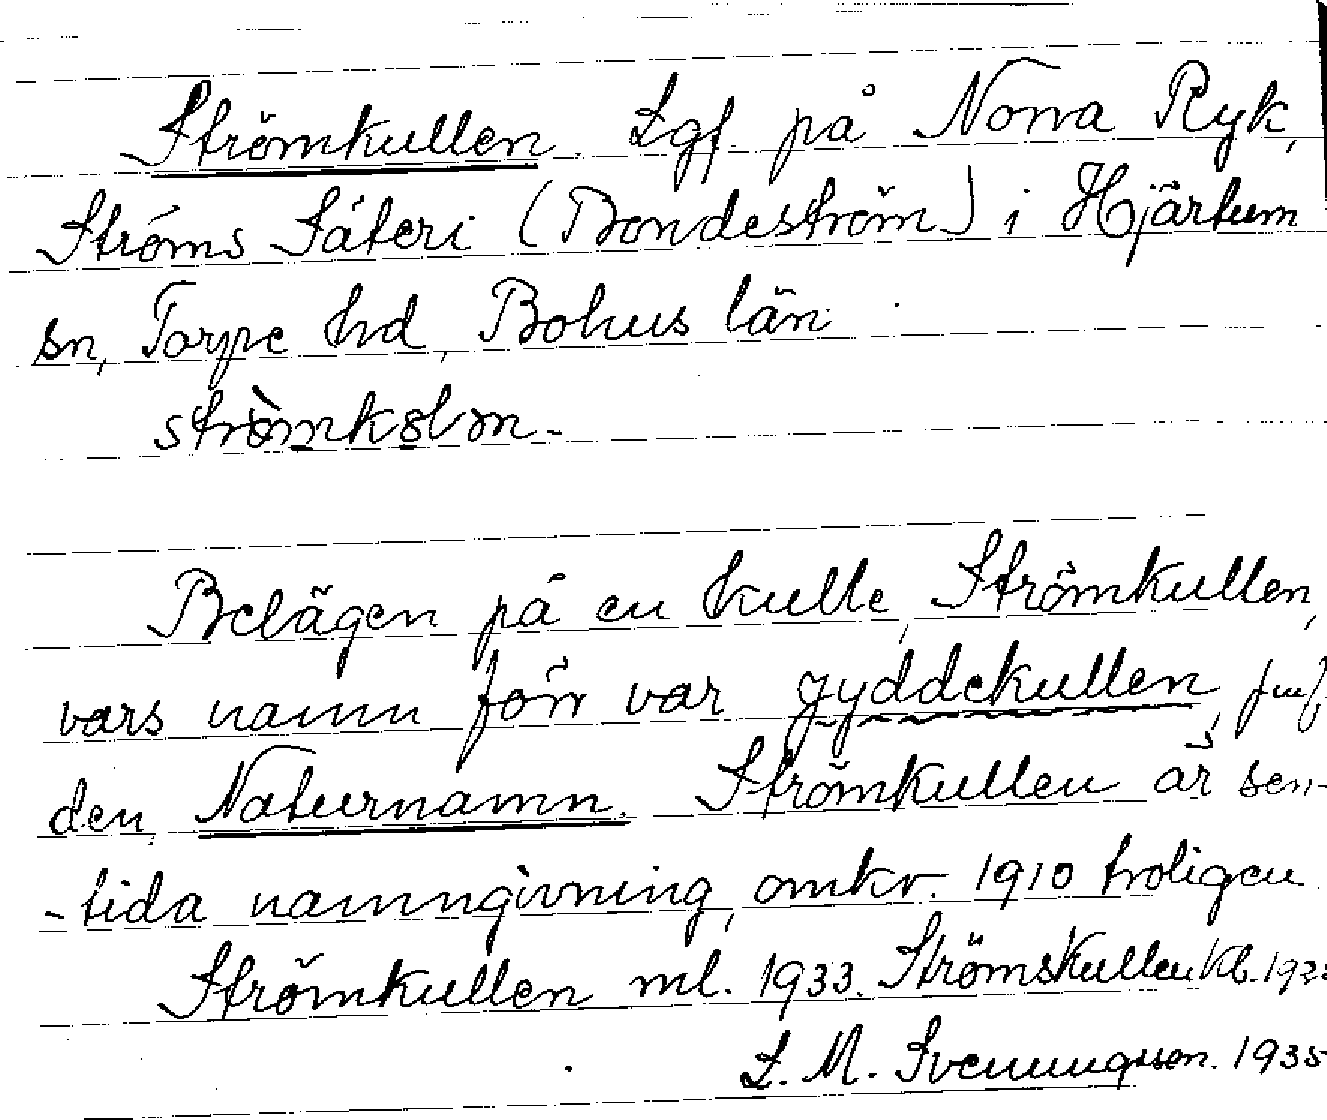 Strömkullen. Lgf. på Norra Ryk,
Ströms Säteri (Bondeström) i Hjärtum
sn, Torpe hd, Bohus län.
Belägen på en kulle, Strömkullen,
vars namn förr var gyddekullen, jmf
den. Naturnamn. Strömkullen är sen-
-tida namngivning, omkr. 1910 troligen.
Strömkullen ml. 1933. Strömskullen kb. 
L. M. Svenungsson. 1935